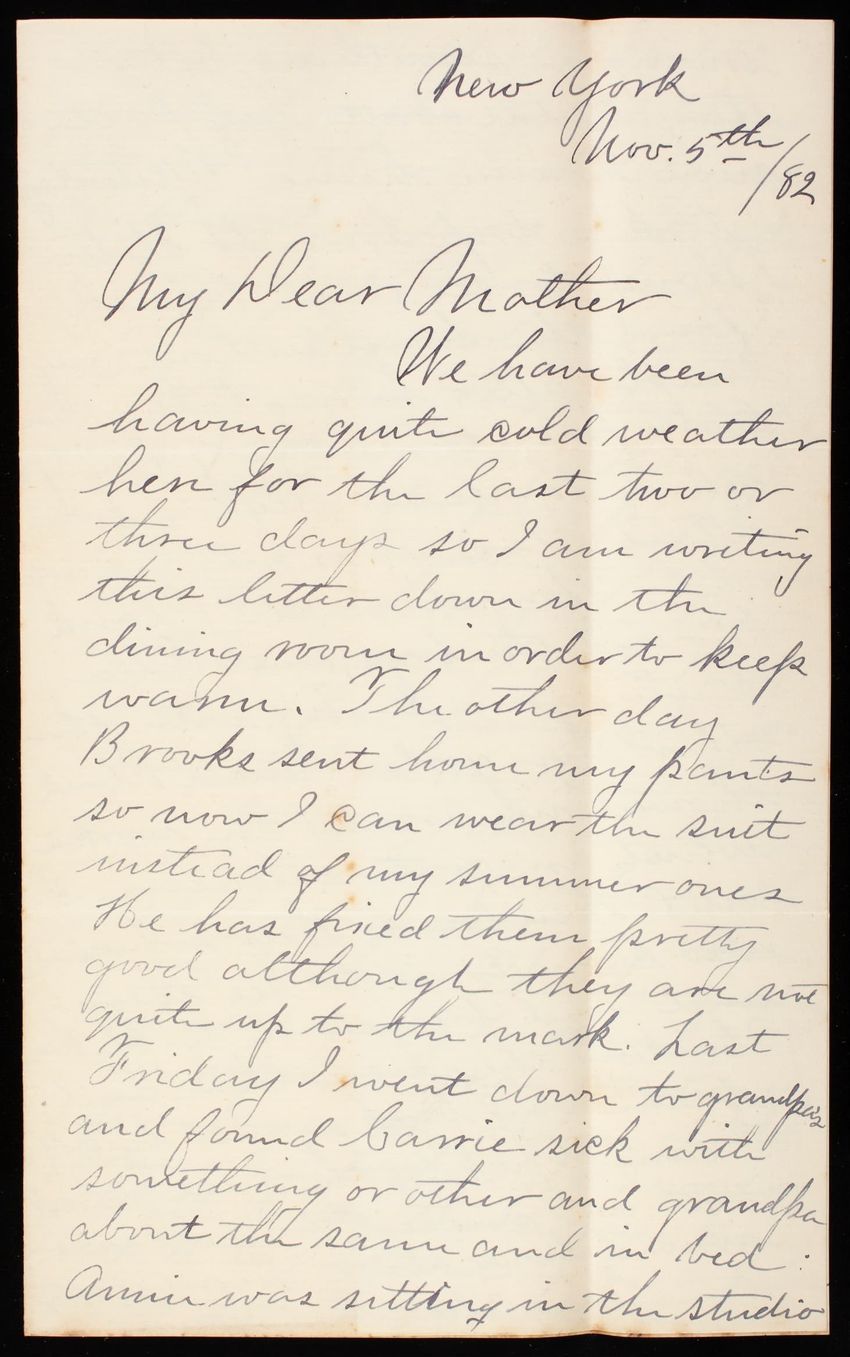 New York
Nov. 5th /82
My Dear Mother
We have been
having quite cold weather
here for the last two or
three days so I am writing
this letter down in the
dining room in order to keep
warm. The other day
Brooks sent home my pants
so now I can wear the suit
instead of my summer ones
He has fixed them pretty
good although they are not
quite up to the mark. Last
Friday I went down to grandpa's
and found Carrie sick with
something or other and grandpa
about the same and in bed.
Annie was sitting in the studio